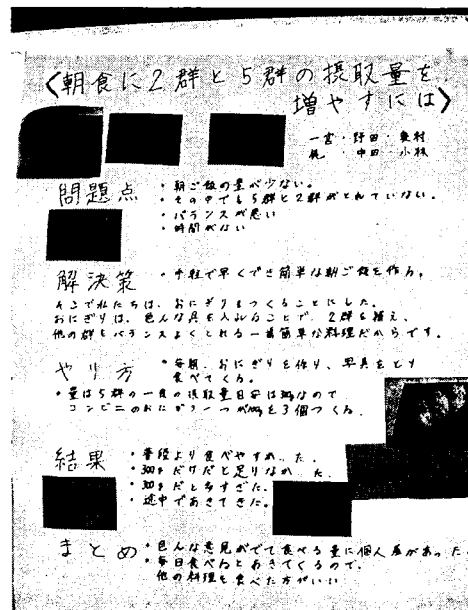 〈朝食に2群と5群の摂取量を
増やすには〉
一宮・野田・奥村
梶・中田・小林
問題点
・朝ご飯の量が少ない。
・その中でも5群と2群がとれていない。
・バランスが悪い
・時間がない
解決策
・手軽で早くでき簡単な朝ご飯を作る。
そこで私たちは、おにぎりをつくることにした。
おにぎりは、色んな具を入れることで、2群を補え、
他の群もバランスよくとれる一番簡単な料理だからです。
やり方
・毎朝、おにぎりを作り、写真をとり
食べてくる。
・量は5群の一食の摂取量目安は300gなので
コンビニのおにぎり一つが100gを3個つくる。
結果
・普段より食べやすかった。
・300gだけだと足りなかった。
・300gだと多すぎた。
・途中であきてきた。
まとめ
・色んな意見がでて食べる量に個人差があった。
・毎日食べるとあきてくるので、
他の料理も食べた方がいい